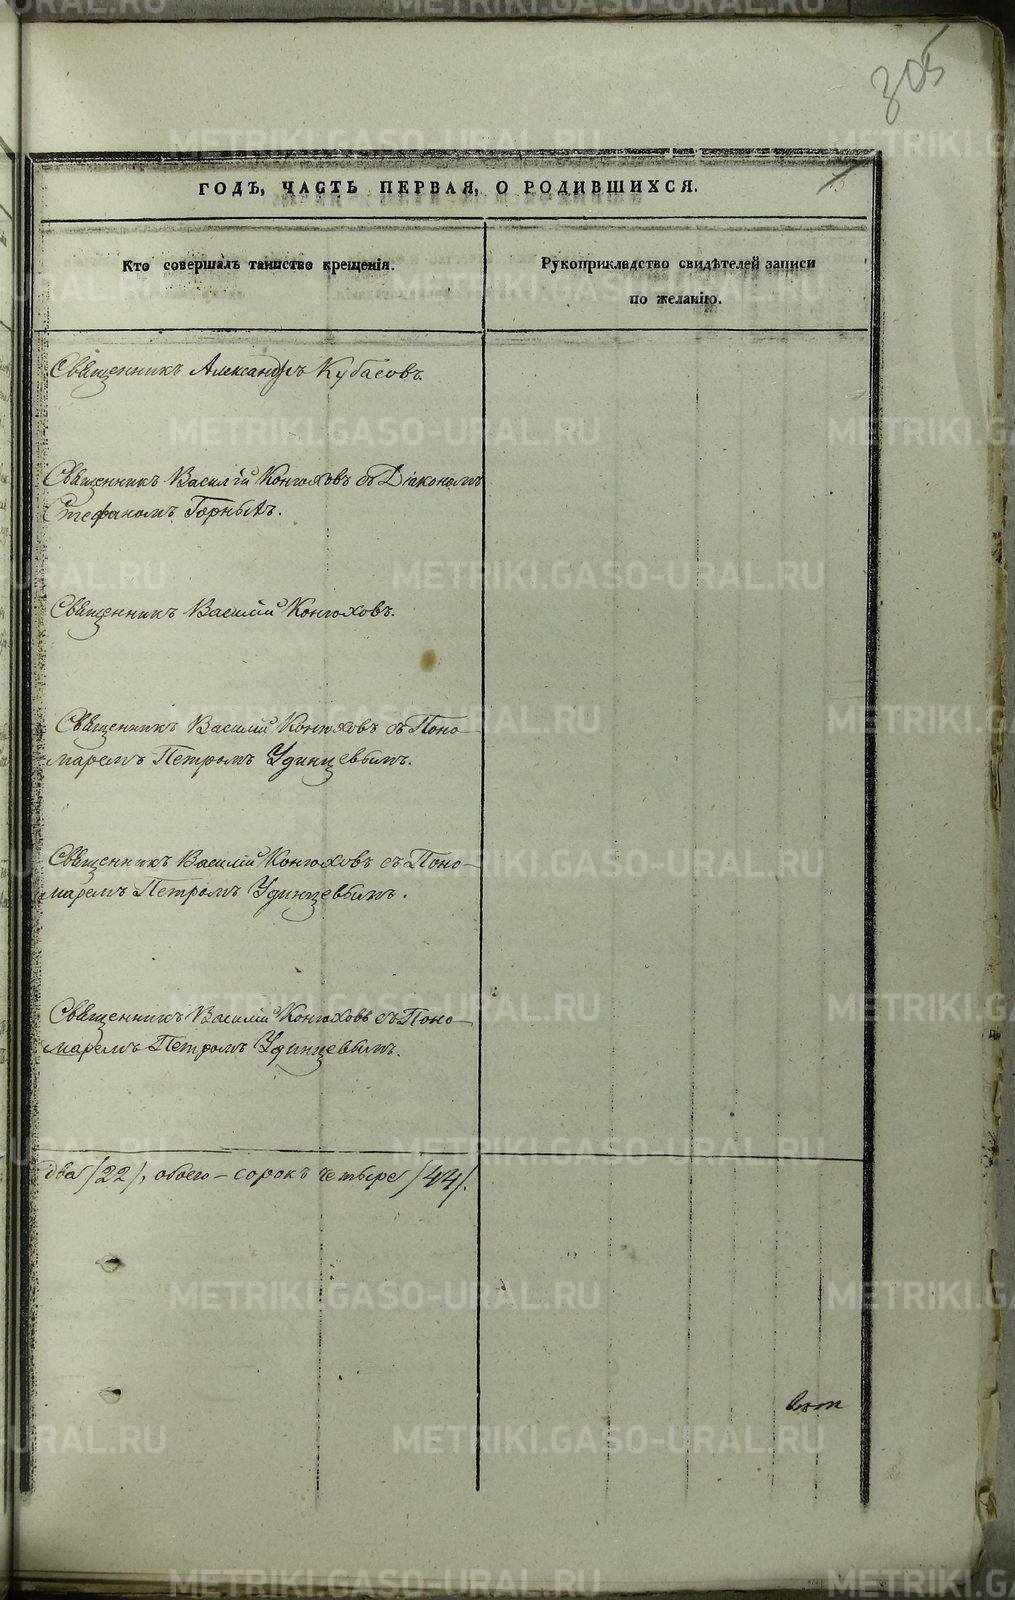 305
ГОДЪ, ЧАСТЬ ПЕРВАЯ, О РОДИВШИХСЯ.
Кто совершалъ таинство крещенія.
Рукоприкладство свидѣтелей записи
по желанію.
Священникъ Александръ Кубасовъ.
Священникъ Василій Конюховъ съ Діакономъ
Стефаномъ Горныхъ.
Священникъ Василій Конюховъ.
Священникъ Василій Конюховъ съ Поно-
маремъ Петромъ Удинцевымъ.
Священникъ Василій Конюховъ съ Поно-
маремъ Петромъ Удинцевымъ.
Священникъ Василій Конюховъ съ Поно-
маремъ Петромъ Удинцевымъ.
два /22/, обоего – сорокъ четыре /44/.
METRIKI.GASO-URAL.RU